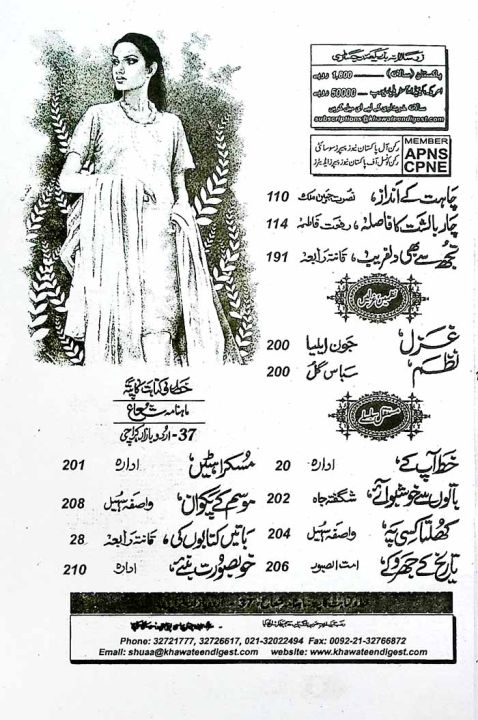 پاکستان (سالانہ) ---- 1,800 روپے
سالانہ خریداری کے لیے ای میل کریں
subscriptions@khawateendigest.com
MEMBER
APNS
CPNE
رکن آل پاکستان نیوز پیپرز سوسائٹی
رکن کونسل آف پاکستان نیوز پیپرز ایڈیٹرز
چاہت کے انداز، نصرت جبین ملک 110
چار بالشت کا فاصلہ، رفعت فاطمہ 114
تجھ سے بھی دلفریب، قانتہ رابعہ 191
نظمیں غزلیں
غزل، جون ایلیا 200
نظم، سباس گل 200
مستقل سلسلے
خط آپ کے، ادارہ 20
باتوں سے خوشبو آئے، شگفتہ جاہ 202
کھلتا کسی پہ، واصفہ سہیل 204
تاریخ کے جھروکے، امت الصبور 206
خط و کتابت کا پتہ
ماہنامہ شعاع
37- اردو بازار کراچی
مسکراہٹیں، ادارہ 201
موسم کے پکوان، واصفہ سہیل 208
باتیں کتابوں کی، قانتہ رابعہ 28
خوبصورت بنیے، ادارہ 210
Phone: 32721777, 32726617, 021-32022494 Fax: 0092-21-32766872
Email: shuaa@khawateendigest.com website: www.khawateendigest.com